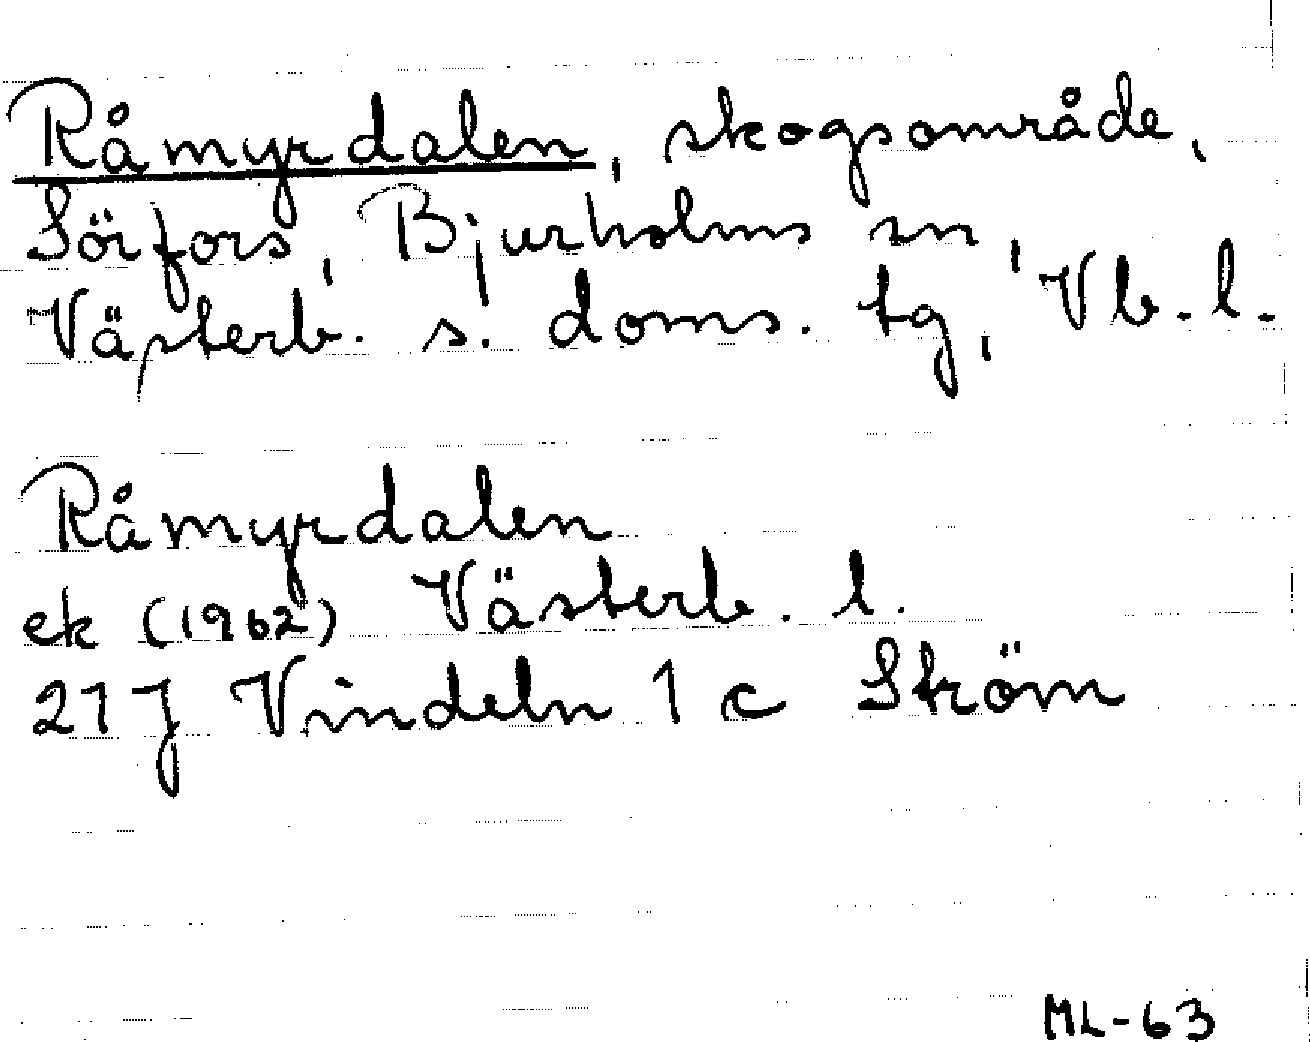 Råmyrdalen, skogsområde,
Sörfors, Bjurholms sn,
Västerb. s. doms. tg, Vb. l.
Råmyrdalen
ek (1962) Västerb. l.
21 J Vindeln 1 c Ström
ML-63